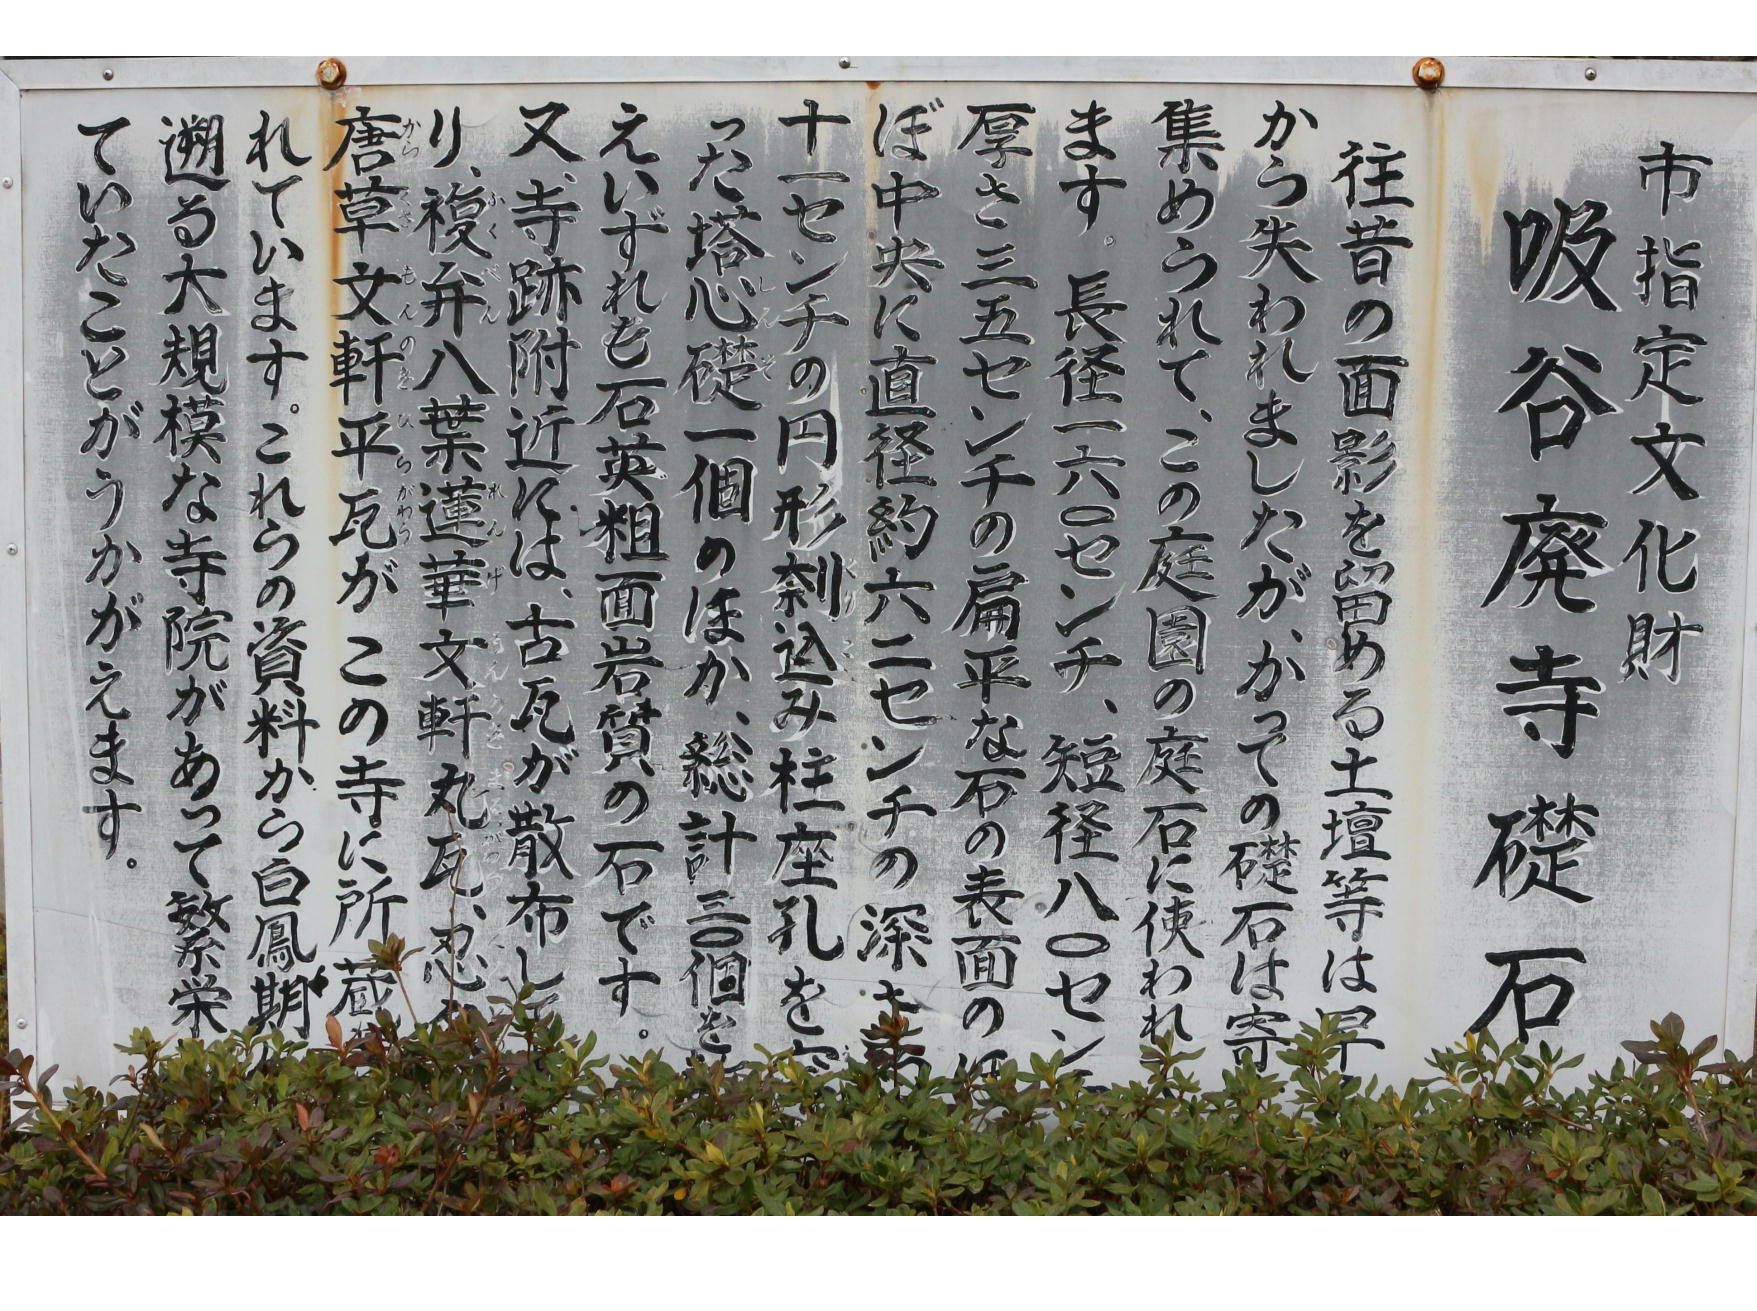 市指定文化財
吸谷廃寺礎石
往昔の面影を留める土壇等は早
から失われましたが、かつての礎石は寄
集めうれて、この庭園の庭石に使われ
ます。長径一六〇センチ、短径八〇セン
厚さ三五センチの扁平な石の表面のほ
ぼ中央に直径約六二センチの深さ
十一センチの円形刳込み柱座孔を
った塔心礎一個のほか、総計三〇個を
えいずれも石英粗面岩質の石です。
又、寺跡附近には、古瓦が散布して
り、複弁八葉蓮華文軒丸瓦、忍
唐草文軒平瓦がこの寺に所蔵
れています。これらの資料から白鳳期
遡る大規模な寺院があって繁栄
ていたことがうかがえます。